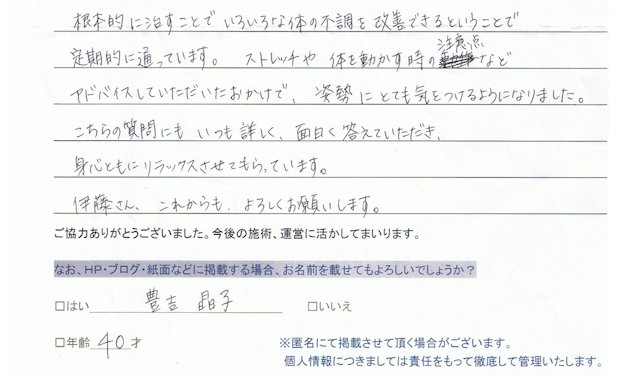 根本的に治すことでいろいろな体の不調を改善できるということで
定期的に通っています。 ストレッチや 体を動かす時の注意点など
アドバイスしていただいたおかげで、 姿勢にとても気をつけるようになりました。
こちらの質問にも いつも詳しく、面白く答えていただき、
身心ともにリラックスさせてもらっています。
伊藤さん、これからも、よろしくお願いします。
ご協力ありがとうございました。今後の施術、運営に活かしてまいります。
なお、HP・ブログ・紙面などに掲載する場合、お名前を載せてもよろしいでしょうか?
□はい 豊吉 晶子 □いいえ
□年齢 40 才 ※匿名にて掲載させて頂く場合がございます。
個人情報につきましては責任をもって徹底して管理いたします。